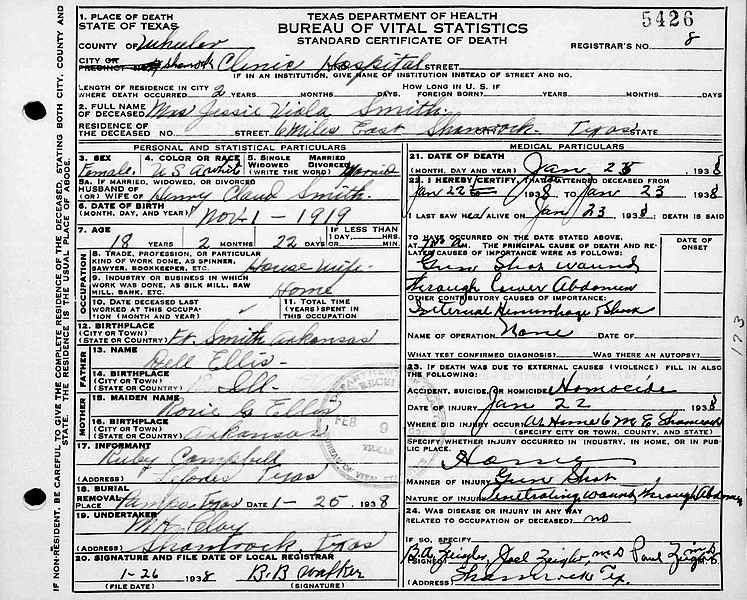 TEXAS DEPARTMENT OF HEALTH
BUREAU OF VITAL STATISTICS
STANDARD CERTIFICATE OF DEATH
5426
1. PLACE OF DEATH
STATE OF TEXAS
COUNTY OF Wheeler
REGISTRAR'S NO. 8
CITY OR PRECINCT NO. Shamrock Clinic Hospital STREET
IF IN AN INSTITUTION, GIVE NAME OF INSTITUTION INSTEAD OF STREET AND NO.
LENGTH OF RESIDENCE IN CITY WHERE DEATH OCCURRED 2 YEARS MONTHS DAYS. HOW LONG IN U. S. IF FOREIGN BORN? YEARS MONTHS DAYS
2. FULL NAME OF DECEASED Mrs Jessie Viola Smith.
RESIDENCE OF THE DECEASED NO. STREET 6 Miles East Shamrock Texas STATE
PERSONAL AND STATISTICAL PARTICULARS
3. SEX Female.
4. COLOR OR RACE U S A white
5. SINGLE WIDOWED MARRIED DIVORCED (WRITE THE WORD) Married
5A. IF MARRIED, WIDOWED, OR DIVORCED
HUSBAND OF (OR) WIFE OF Henry Claud Smith.
6. DATE OF BIRTH (MONTH, DAY, AND YEAR) Nov. 1 - 1919
7. AGE 18 YEARS 2 MONTHS 22 DAYS IF LESS THAN 1 DAY, HRS. MIN.
OCCUPATION
8. TRADE, PROFESSION, OR PARTICULAR KIND OF WORK DONE, AS SPINNER, SAWYER, BOOKKEEPER, ETC. House wife
9. INDUSTRY OR BUSINESS IN WHICH WORK WAS DONE, AS SILK MILL, SAW MILL, BANK, ETC. Home
10. DATE DECEASED LAST WORKED AT THIS OCCUPATION (MONTH AND YEAR)
11. TOTAL TIME (YEARS) SPENT IN THIS OCCUPATION
12. BIRTHPLACE (CITY OR TOWN) (STATE OR COUNTRY) Ft. Smith Arkansas
FATHER
13. NAME Dell Ellis
14. BIRTHPLACE (CITY OR TOWN) (STATE OR COUNTRY) Ill.
MOTHER
15. MAIDEN NAME Rosie Ellis
16. BIRTHPLACE (CITY OR TOWN) (STATE OR COUNTRY) Arkansas
17. INFORMANT Ruby Campbell
(ADDRESS) Texas
18. BURIAL REMOVAL PLACE Pampa, Texas DATE 1-25 1938
19. UNDERTAKER Clay
(ADDRESS) Shamrock Texas
20. SIGNATURE AND FILE DATE OF LOCAL REGISTRAR
1-26 1938 B.B Walker
(FILE DATE) (SIGNATURE)
MEDICAL PARTICULARS
21. DATE OF DEATH (MONTH, DAY AND YEAR) Jan 1938
22. I HEREBY CERTIFY, THAT I ATTENDED DECEASED FROM
Jan 22 1938, TO Jan 23 1938
I LAST SAW ALIVE ON Jan 23 1938; DEATH IS SAID
TO HAVE OCCURRED ON THE DATE STATED ABOVE,
AT M. THE PRINCIPAL CAUSE OF DEATH AND RELATED CAUSES OF IMPORTANCE WERE AS FOLLOWS:
DATE OF ONSET
Gun Shot wound
through Lower Abdomen
OTHER CONTRIBUTORY CAUSES OF IMPORTANCE:
Internal Hemorrhage & Shock
NAME OF OPERATION None DATE OF
WHAT TEST CONFIRMED DIAGNOSIS? WAS THERE AN AUTOPSY?
23. IF DEATH WAS DUE TO EXTERNAL CAUSES (VIOLENCE) FILL IN ALSO THE FOLLOWING:
ACCIDENT, SUICIDE, OR HOMICIDE Homocide
DATE OF INJURY Jan 22 1938
WHERE DID INJURY OCCUR? At Home 6 M E Shamrock
(SPECIFY CITY OR TOWN, COUNTY, AND STATE)
SPECIFY WHETHER INJURY OCCURRED IN INDUSTRY, IN HOME, OR IN PUBLIC PLACE.
Home
MANNER OF INJURY Gun Shot
NATURE OF INJURY Penetrating wound through Abdomen
24. WAS DISEASE OR INJURY IN ANY WAY RELATED TO OCCUPATION OF DECEASED? no
IF SO, SPECIFY
(SIGNED) B.A. Zeigler, Joel Zeigler, M.D Paul Zeigler M.D.
(ADDRESS) Shamrock Tex.
FEB 9
173
IF NON-RESIDENT, BE CAREFUL TO GIVE THE COMPLETE RESIDENCE OF THE DECEASED, STATING BOTH CITY, COUNTY AND STATE. THE RESIDENCE IS THE USUAL PLACE OF ABODE.